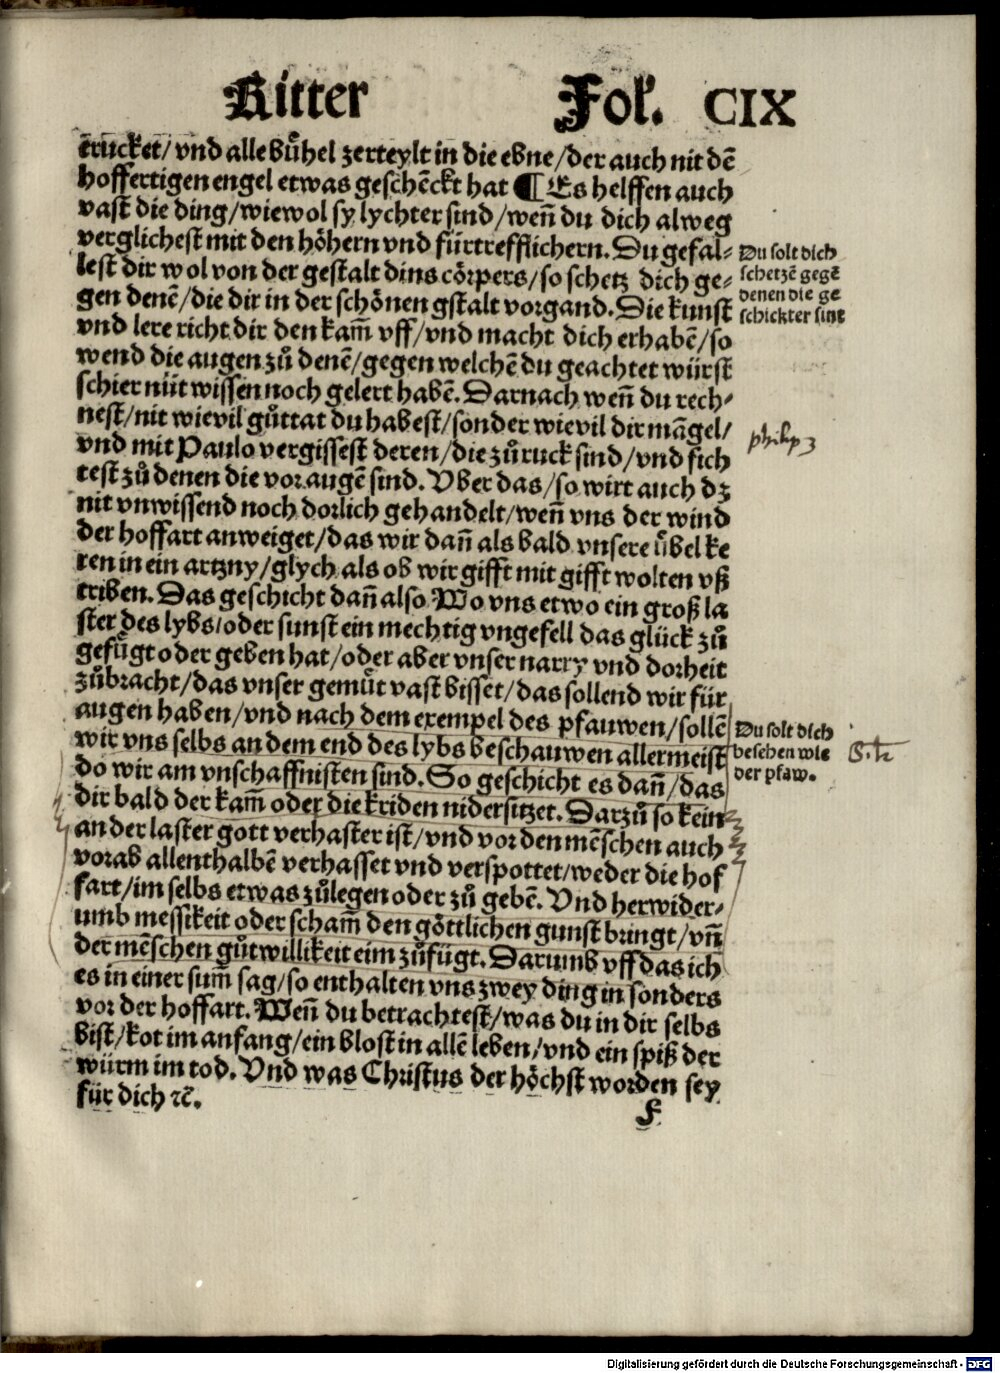 Ritter Fol. CIX
trucket/ vnd alle bühel zerteylt in die ebne/der auch nit dē
hoffertigen engel etwas geschēckt hat ¶ Es helffen auch
vast die ding/wiewol sy lychter sind/weñ du dich alweg
verglichest mit den höhern vnd fürtrefflichern. Du gefal⸗
lest dir wol von der gestalt dins cörpers/so schetz dich ge⸗
gen denē/die dir in der schönen gstalt vorgand. Die kunst
vnd lere richt dir den kam̄ vff/vnd macht dich erhabē/so
wend die augen zů denē/gegen welchē du geachtet würst
schier nüt wissen noch gelert habē. Darnach weñ du rech⸗
nest/nit wievil gůttat du habest/sonder wievil dir māgel/
vnd mit Paulo vergissest deren/die zůruck sind/vnd sich
test zů denen die vor augē sind. Vber das/so wirt auch dz
nit vnwissend noch dorlich gehandelt/weñ vns der wind
der hoffart anweiget/das wir dañ als bald vnsere übel ke
ren in ein artzny/glych als ob wir gifft mit gifft wolten vß
triben. Das geschicht dañ also Wo vns etwo ein groß la
ster des lybs/oder sunst ein mechtig vngefell das glück zů
gefügt oder geben hat/oder aber vnser narry vnd dorheit
zůbracht/das vnser gemüt vast bisset/das sollend wir für
augen haben/vnd nach dem exempel des pfauwen/sollē
wir vns selbs an dem end des lybs beschauwen allermeist
do wir am vnschaffnisten sind. So geschicht es dañ/das
dir bald der kam̄ oder die kriden nidersitzet. Darzů so kein
ander laster gott verhaster ist/vnd vor den mēschen auch
vorab allenthalbē verhasset vnd verspottet/weder die hof
fart/im selbs etwas zůlegen oder zů gebē. Vnd herwider⸗
umb messikeit oder scham̄ den göttlichen gunst bringt/vñ
der mēschen gůtwillikeit eim zůfügt. Darumb vff das ich
es in einer sum̄ sag/so enthalten vns zwey ding in sonders
vor der hoffart. Weñ du betrachtest/was du in dir selbs
bist/kot im anfang/ein blost in allē leben/vnd ein spiß der
würm im tod. Vnd was Christus der höchst worden sey
für dich ꝛc̄.
f
Du solt dich
schetzē gegē
denen die ge
schickter sint
philip 3
Du solt dich
besehen wie
der pfaw.
Digitalisierung gefördert durch die Deutsche Forschungsgemeinschaft - DFG